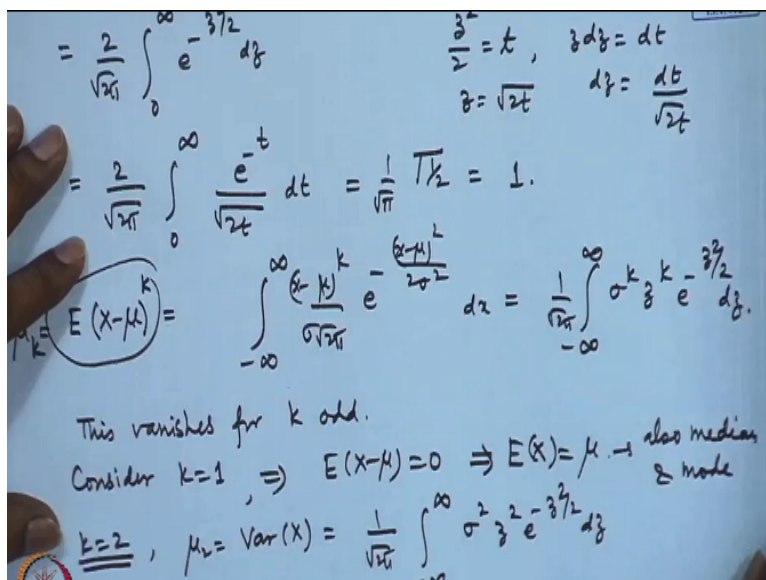 = 2/√2π ∫₀^∞ e^(-z²/2) dz    z²/2 = t,  z dz = dt
z = √2t    dz = dt/√2t
= 2/√2π ∫₀^∞ e^(-t)/√2t dt = 1/√π Γ1/2 = 1.
μ_k = E(X-μ)^k = ∫_{-∞}^{∞} (x-μ)^k/σ√2π e^(-(x-μ)²/2σ²) dx = 1/√2π ∫_{-∞}^{∞} σ^k z^k e^(-z²/2) dz.
This vanishes for k odd.
Consider k=1, ⇒ E(X-μ)=0 ⇒ E(X)=μ. → also median & mode
k=2, μ₂ = Var(X) = 1/√2π ∫_{-∞}^{∞} σ² z² e^(-z²/2) dz